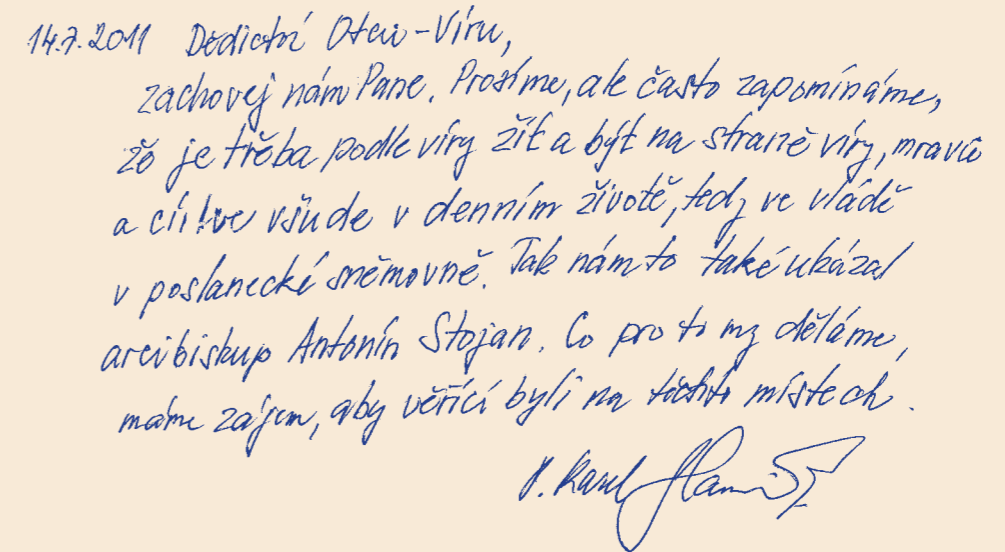 14.7.2011 Dědictví Otců-Víru,
zachovej nám Pane. Prosíme, ale často zapomínáme,
že je třeba podle víry žít a být na straně víry, mravů
a církve všude v denním životě, tedy ve vládě
v poslanecké sněmovně. Tak nám to také ukázal
arcibiskup Antonín Stojan. Co pro to my děláme,
máme zájem, aby věřící byli na těchto místech.
P. Karel